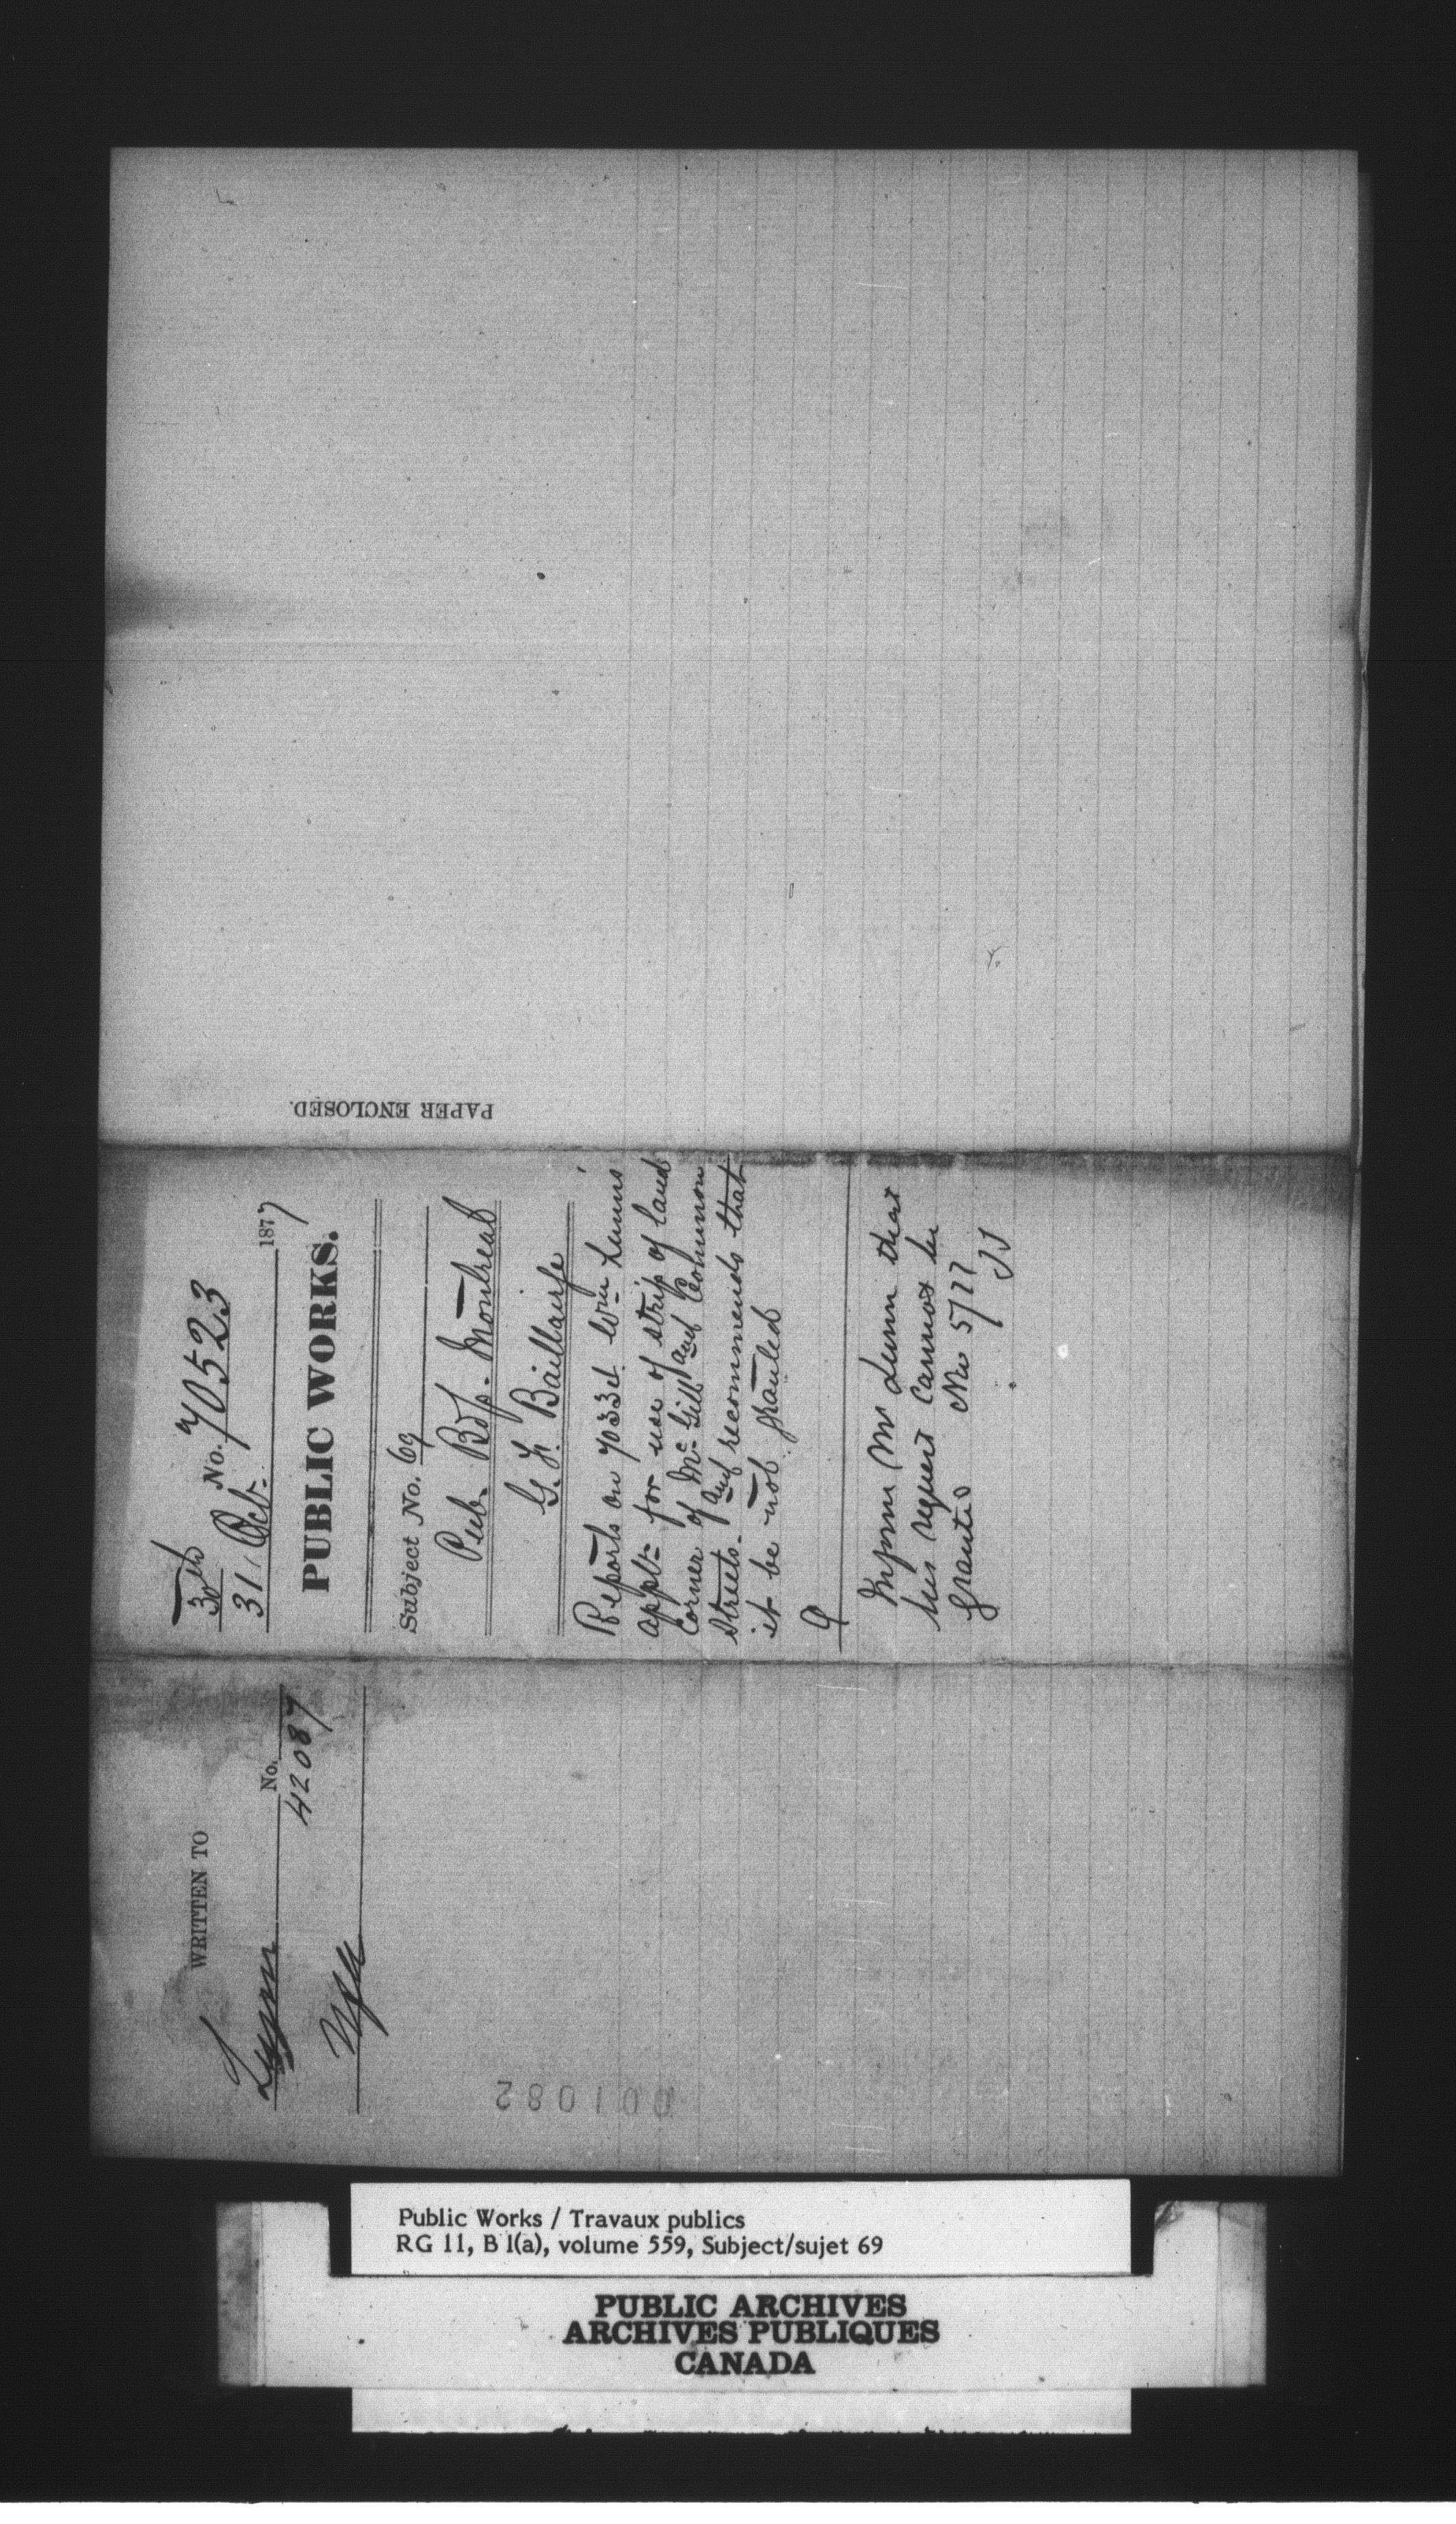 WRITTEN TO
No.
42087
30th No. 70523
31 Oct. 1877
PUBLIC WORKS.
Subject No. 69
Pub. Bdgs. Montreal
G. F. Baillairgé
Reports on 70334 Wm. Lunns
appln. for use of strip of land
corner of McGill and Common
Streets. and recommends that
it be not granted
Inform Mr Lunn that
his request cannot be
granted Nov 5/77
PAPER ENCLOSED.
001082
Public Works / Travaux publics
RG 11, B 1(a), volume 559, Subject/sujet 69
PUBLIC ARCHIVES
ARCHIVES PUBLIQUES
CANADA